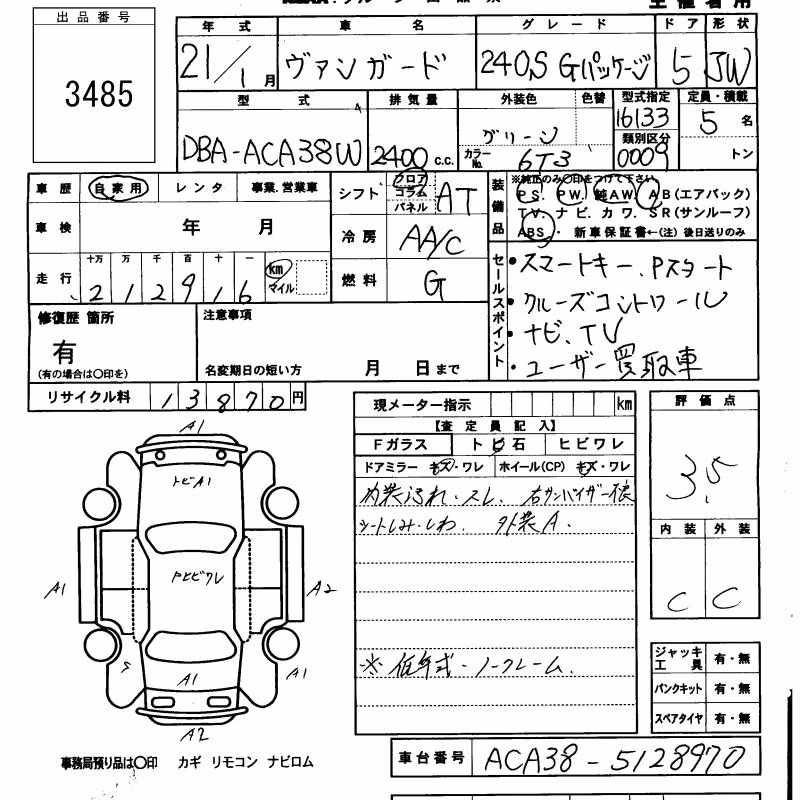 主催者用
出品番号
3485
年式 車名 グレード ドア 形状
21/1月 ヴァンガード 240S Gパッケージ 5 5W
型式 排気量 外装色 色替 型式指定 定員・積載
DBA-ACA38W 2400 c.c. グリーン 16133 5名
カラーNo. 6T3 類別区分 0009 トン
車歴 自家用 レンタ 事業.営業車
シフト フロア コラム パネル AT
装備品 ※純正のみ○印をつけて下さい
PS. PW. 純AW. AB(エアバック)
TV. ナビ. カワ. SR(サンルーフ)
ABS. ・ 新車保証書←(注) 後日送りのみ
車検 年 月
冷房 AA/C
走行 十万 万 千 百 十 一
212916 km マイル
燃料 G
セールスポイント
・スマートキー、Pスタート
・クルーズコントロール
・ナビ、TV
・ユーザー買取車
修復歴 箇所
有
(有の場合は○印を)
注意事項
名変期日の短い方 月 日まで
リサイクル料 13870円
現メーター指示 km
【査定員記入】
Fガラス トビ石 ヒビワレ
ドアミラー キズ・ワレ ホイール(CP) キズ・ワレ
内装汚れ・スレ. 右サンバイザー不良
シートしみ・しわ. 外装A.
※ 低年式・ノークレーム.
評価点
3.5
内装 外装
C C
ジャッキ工具 有・無
パンクキット 有・無
スペアタイヤ 有・無
A1
トビA1
A1
Pヒビワレ
A2
S
A1
A1
A2
事務局預り品は○印 カギ リモコン ナビロム
車台番号 ACA38-5128970